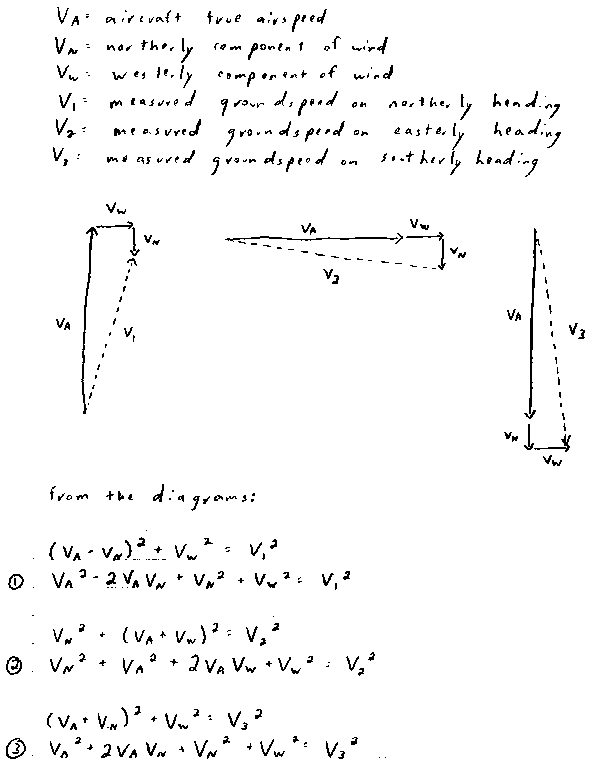 V_A = aircraft true airspeed
V_N = northerly component of wind
V_W = westerly component of wind
V_1 = measured groundspeed on northerly heading
V_2 = measured groundspeed on easterly heading
V_3 = measured groundspeed on southerly heading
V_W
V_N
V_A
V_1
V_A
V_W
V_N
V_2
V_A
V_3
V_N
V_W
from the diagrams:
(V_A - V_N)² + V_W² = V_1²
① V_A² - 2 V_A V_N + V_N² + V_W² = V_1²
V_N² + (V_A + V_W)² = V_2²
② V_N² + V_A² + 2 V_A V_W + V_W² = V_2²
(V_A + V_N)² + V_W² = V_3²
③ V_A² + 2 V_A V_N + V_N² + V_W² = V_3²